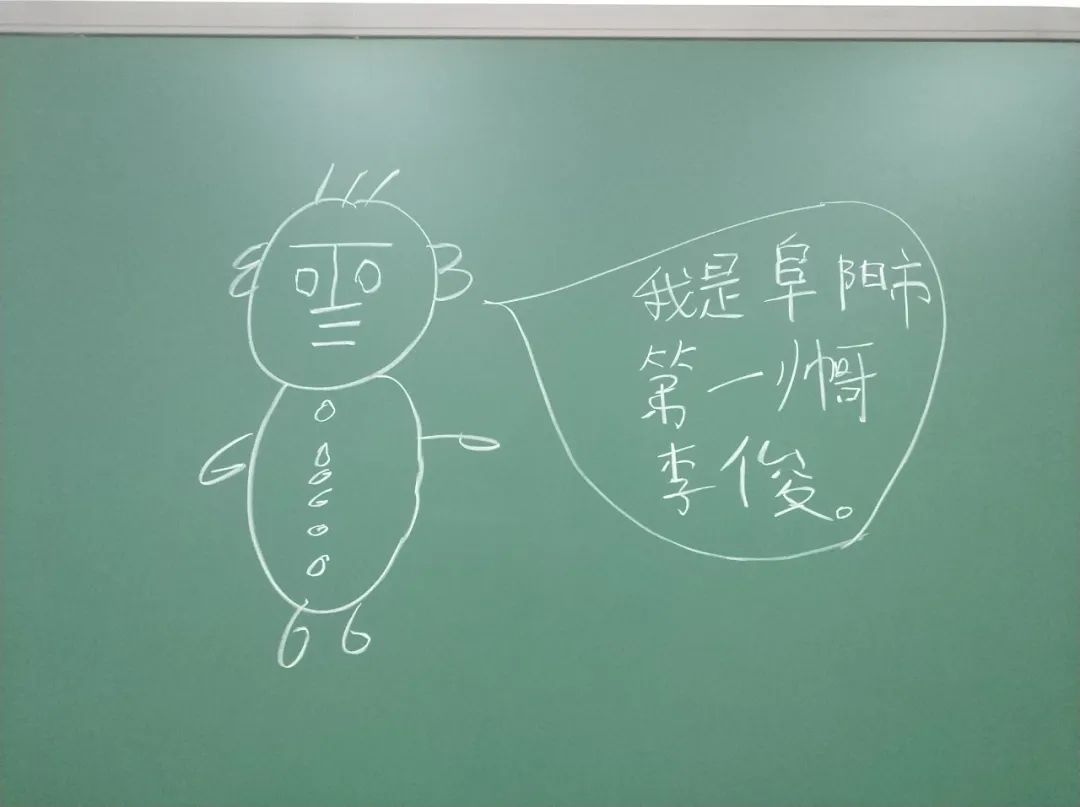 我是阜阳市
第一帅哥
李俊。